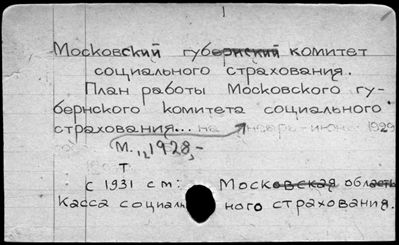 1
Московский губернский комитет
социального страхования.
План работы Московского гу-
бернского комитета социального
страхования... на январь-июнь 1929
М., 1928,-
т
с 1931 см: Московская область
Касса социаль ного страхования.